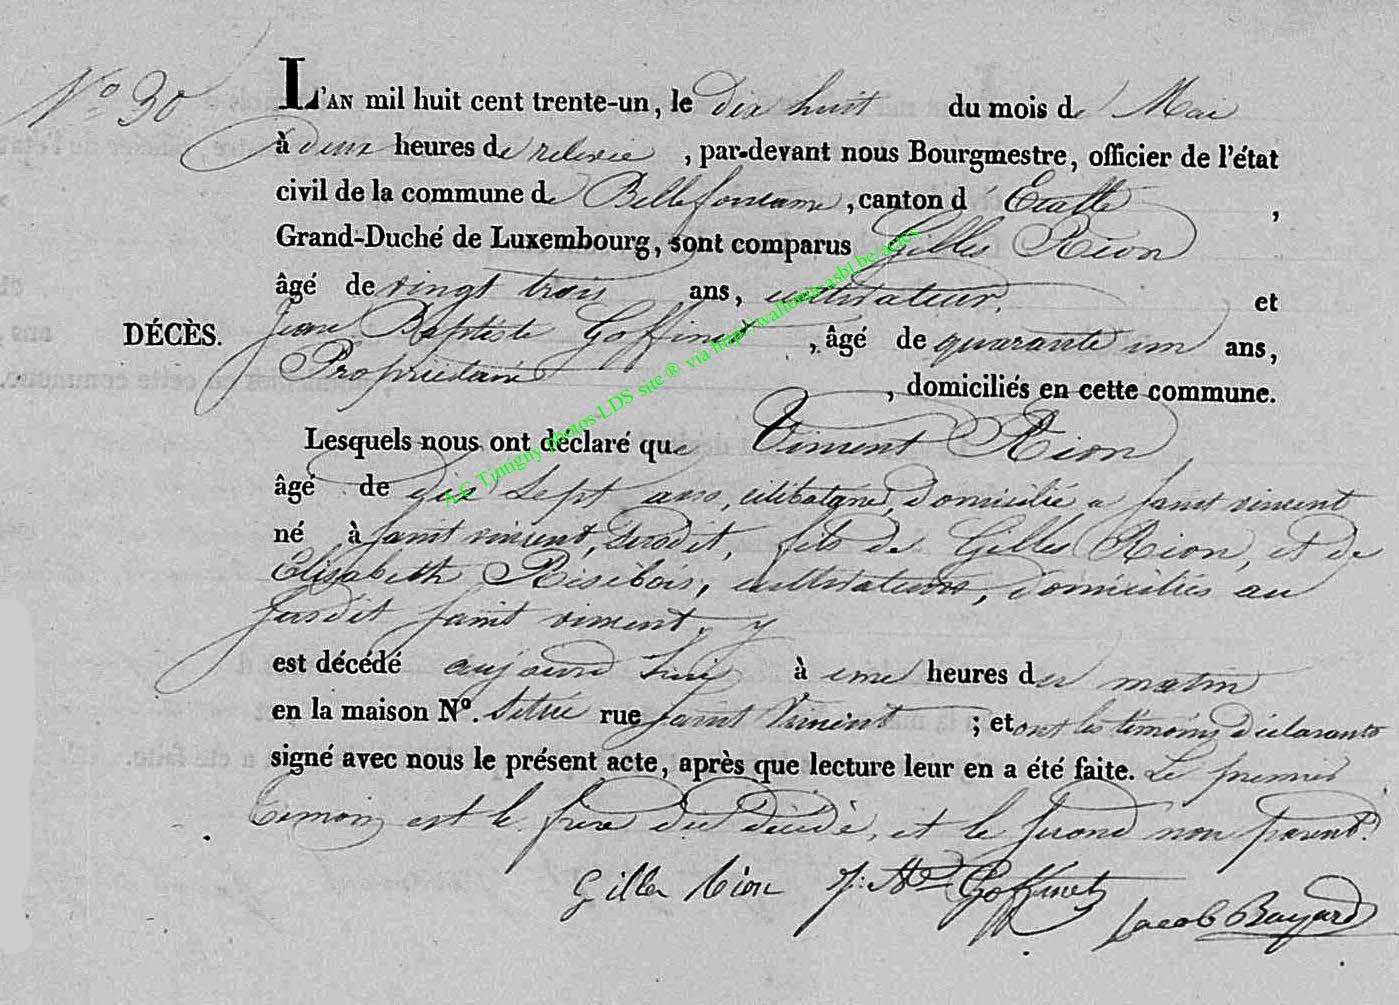 N° 30
L'AN mil huit cent trente-un, le dix huit du mois de Mai
à deux heures de relevée, par-devant nous Bourgmestre, officier de l'état
civil de la commune de Bellefontaine, canton d'Etalle,
Grand-Duché de Luxembourg, sont comparus Gilles Rion
âgé de vingt trois ans, cultivateur, et
DÉCÈS. Jean Baptiste Goffinet, âgé de quarante un ans,
Propriétaire, domiciliés en cette commune.
Lesquels nous ont déclaré que Vincent Rion,
âgé de dix sept ans, célibataire, domicilié a saint vincent
né à saint vincent, susdit, fils de Gilles Rion, et de
Elisabeth Résibois, cultivateurs, domiciliés au
susdit saint vincent, y
est décédé aujourd'hui à une heures du matin
en la maison N°. située rue saint Vincent; et ont les témoins déclarants
signé avec nous le présent acte, après que lecture leur en a été faite. Le premier
témoin est le frère du décédé, et le second non parent.
Gilles Rion J: Bte Goffinet
Jacob Bayard
A.C Tintigny photos LDS site ® via http://wallonia-asbl.be/actes